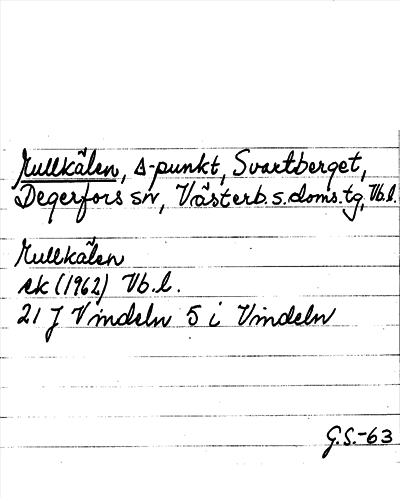 Rullkälen, Δ-punkt, Svartberget,
Degerfors sn, Västerb. s. doms. tg, Vb.l.
Rullkälen
ek (1962) Vb.l.
21 J Vindeln 5 i Vindeln
G.S.-63